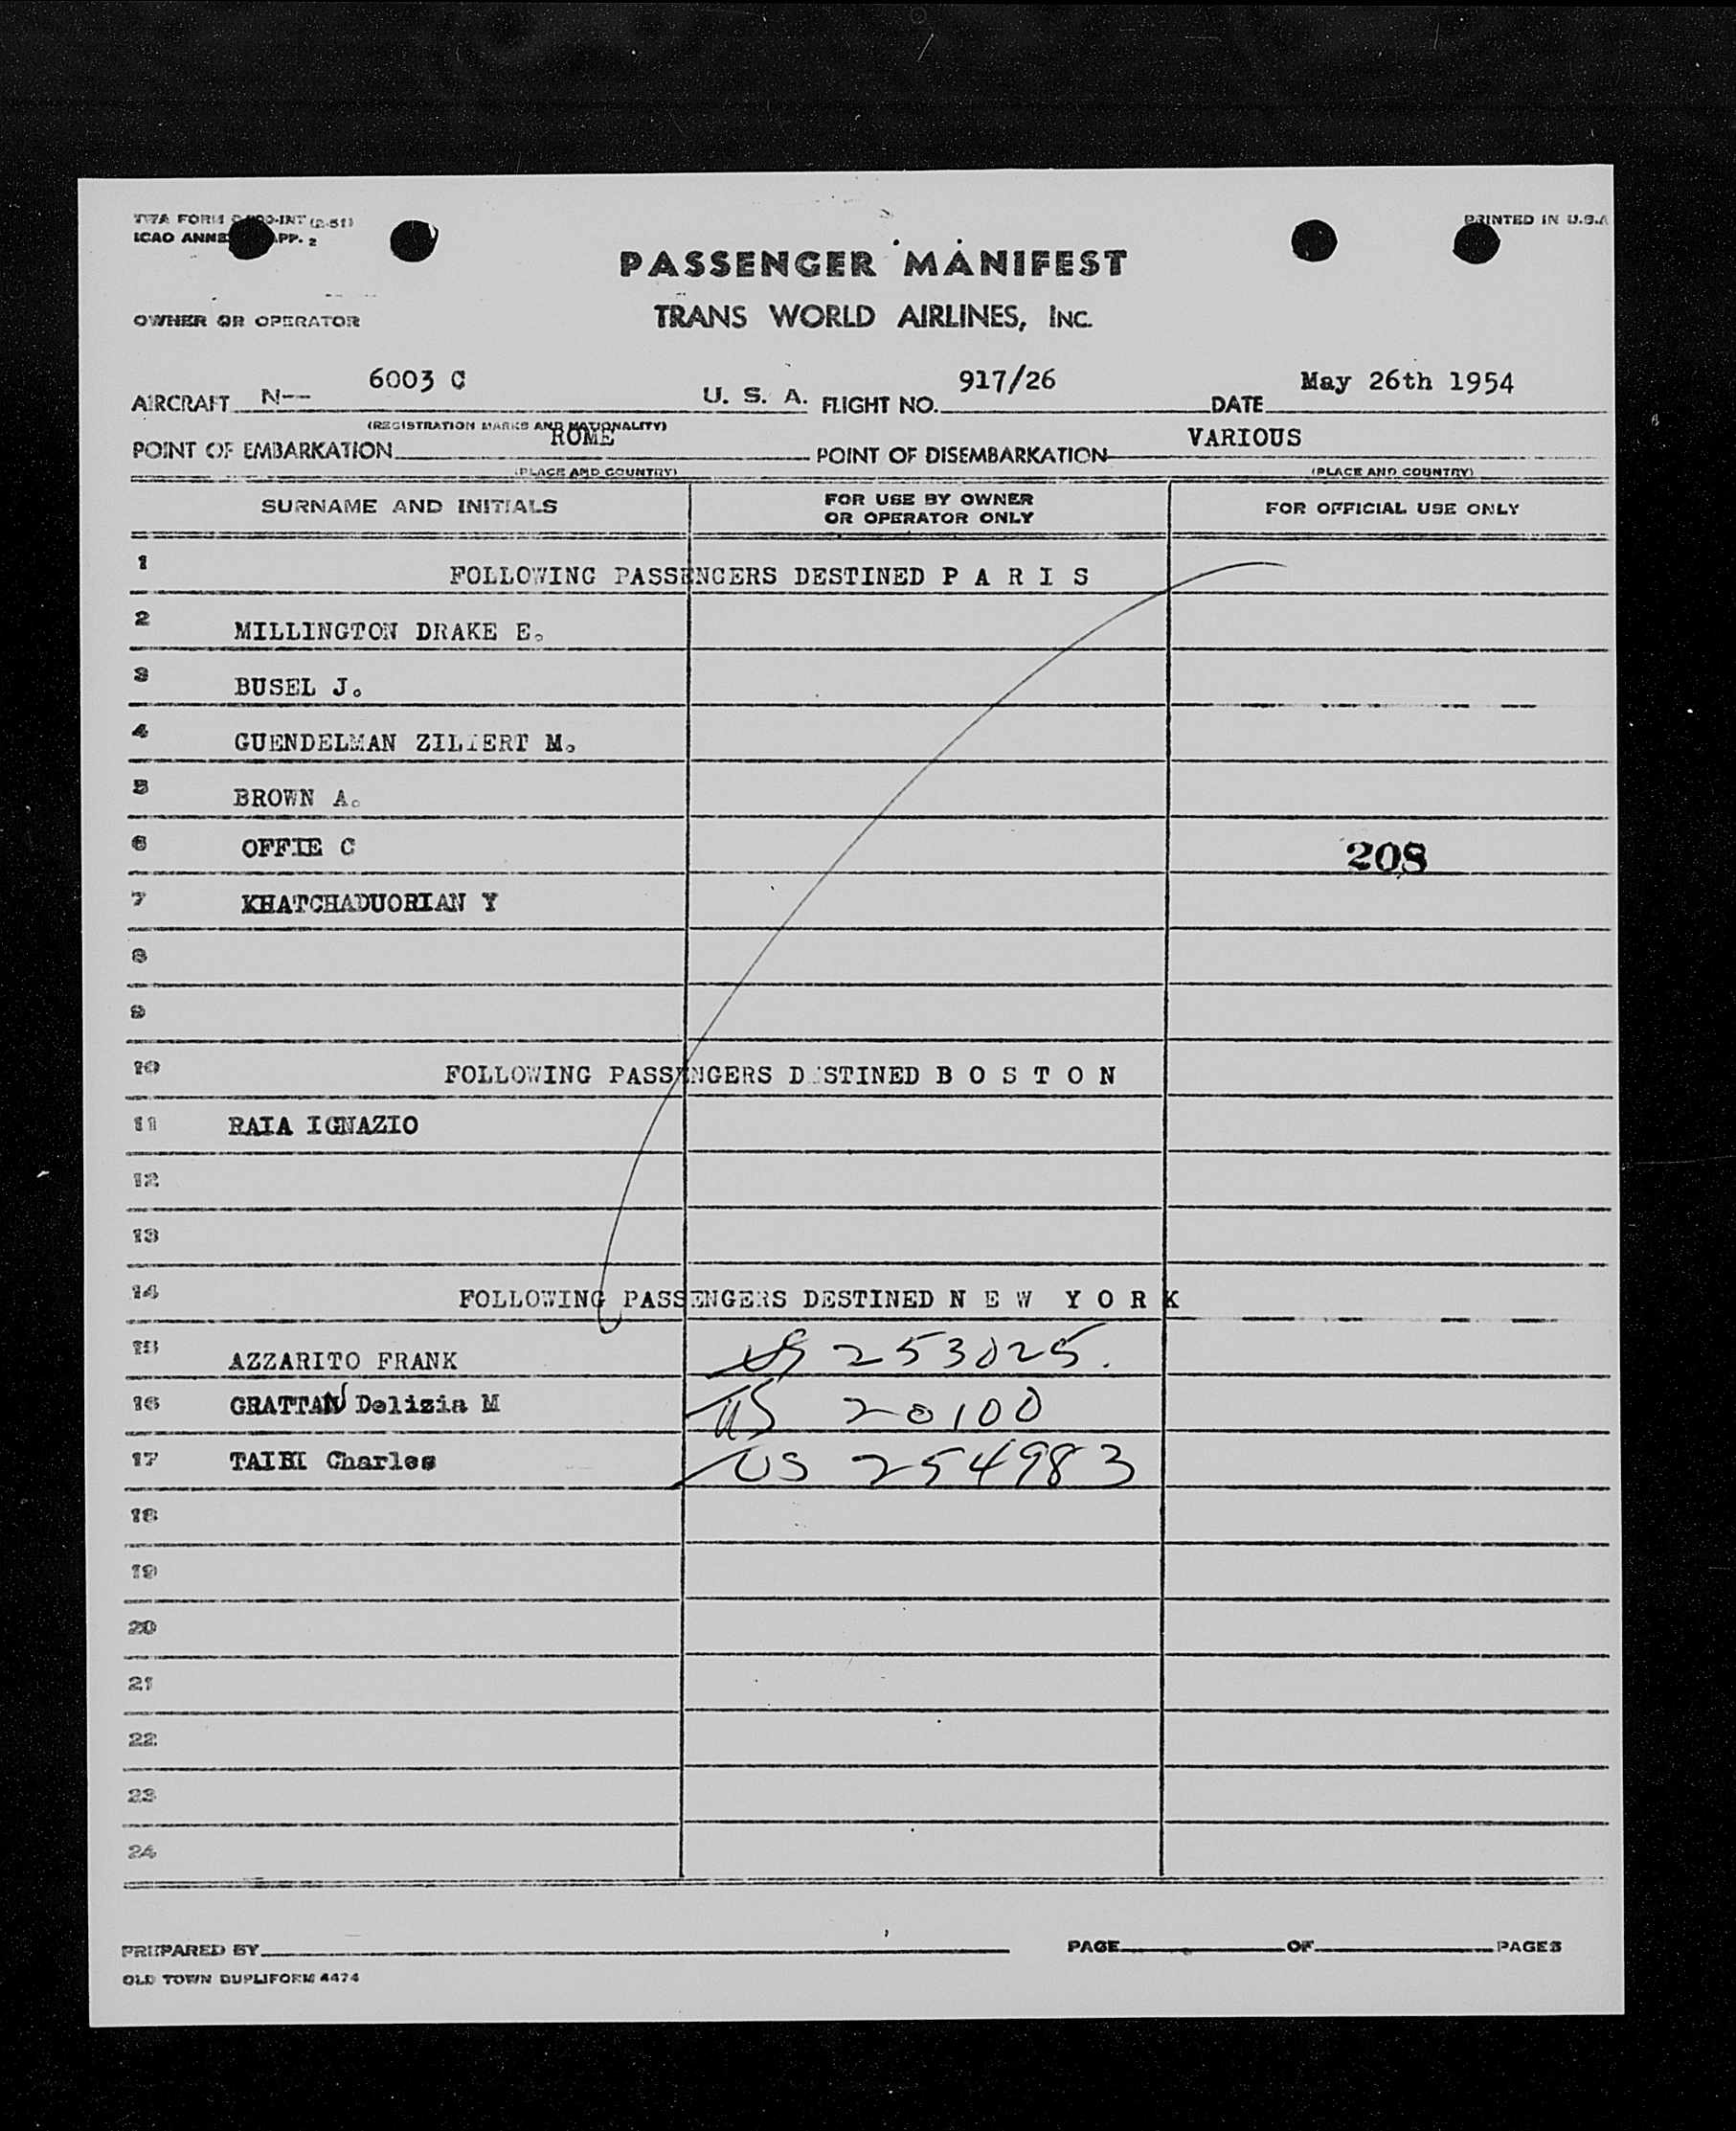 TWA FORM -INT (2-51)
ICAO ANNE PP. 2
PRINTED IN U.S.A
PASSENGER MANIFEST
OWNER OR OPERATOR
TRANS WORLD AIRLINES, INC.
AIRCRAFT N-- 6003 C U. S. A. FLIGHT NO. 917/26 DATE May 26th 1954
(REGISTRATION MARKS AND NATIONALITY)
POINT OF EMBARKATION ROME POINT OF DISEMBARKATION VARIOUS
(PLACE AND COUNTRY) (PLACE AND COUNTRY)
SURNAME AND INITIALS FOR USE BY OWNER OR OPERATOR ONLY FOR OFFICIAL USE ONLY
1 FOLLOWING PASSENGERS DESTINED P A R I S
2 MILLINGTON DRAKE E.
3 BUSEL J.
4 GUENDELMAN M.
5 BROWN A.
6 OFFIE C 208
7 KHATCHADUORIAN Y
8
9
10 FOLLOWING PASSENGERS D STINED B O S T O N
11 RAIA IGNAZIO
12
13
14 FOLLOWING PASSENGERS DESTINED N E W Y O R K
15 AZZARITO FRANK US 253025.
16 GRATTAN Delizia M US 20100
17 TAIBI Charles US 254983
18
19
20
21
22
23
24
PREPARED BY PAGE OF PAGES
OLD TOWN DUPLIFORM 4474